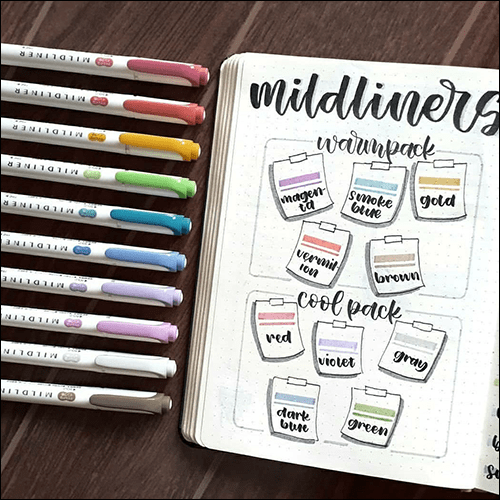 mildliners
warmpack
magen-
ta
smoke
blue
gold
vermil
ion
brown
cool pack
red
violet
gray
dark
blue
green
MILDLINER
MILDLINER
MILDLINER
MILDLINER
MILDLINER
MILDLINER
MILDLINER
MILDLINER
MILDLINER
MILDLINER